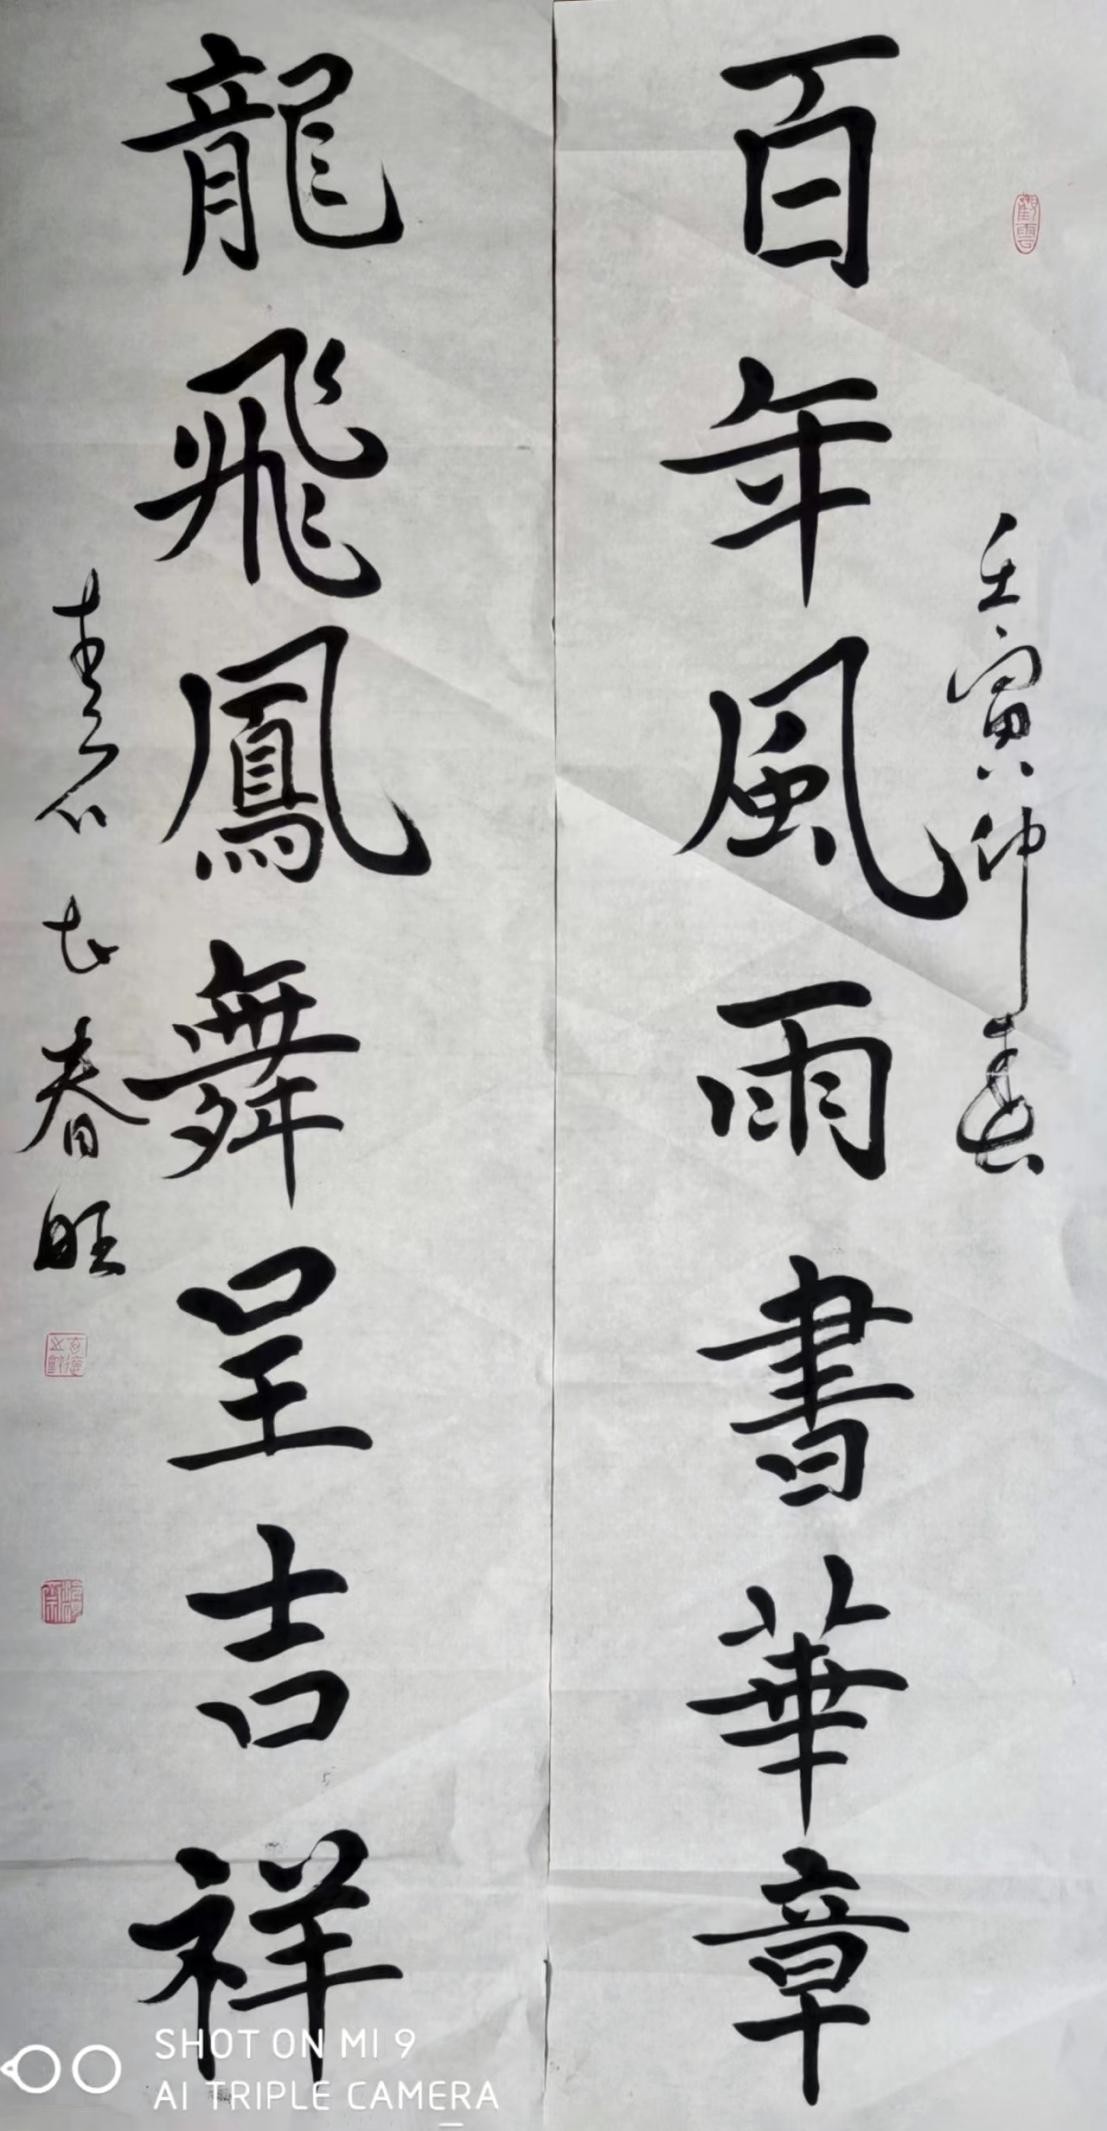 百年風雨書華章
壬寅仲春
龍飛鳳舞呈吉祥
春旺
觀雲
SHOT ON MI 9
AI TRIPLE CAMERA